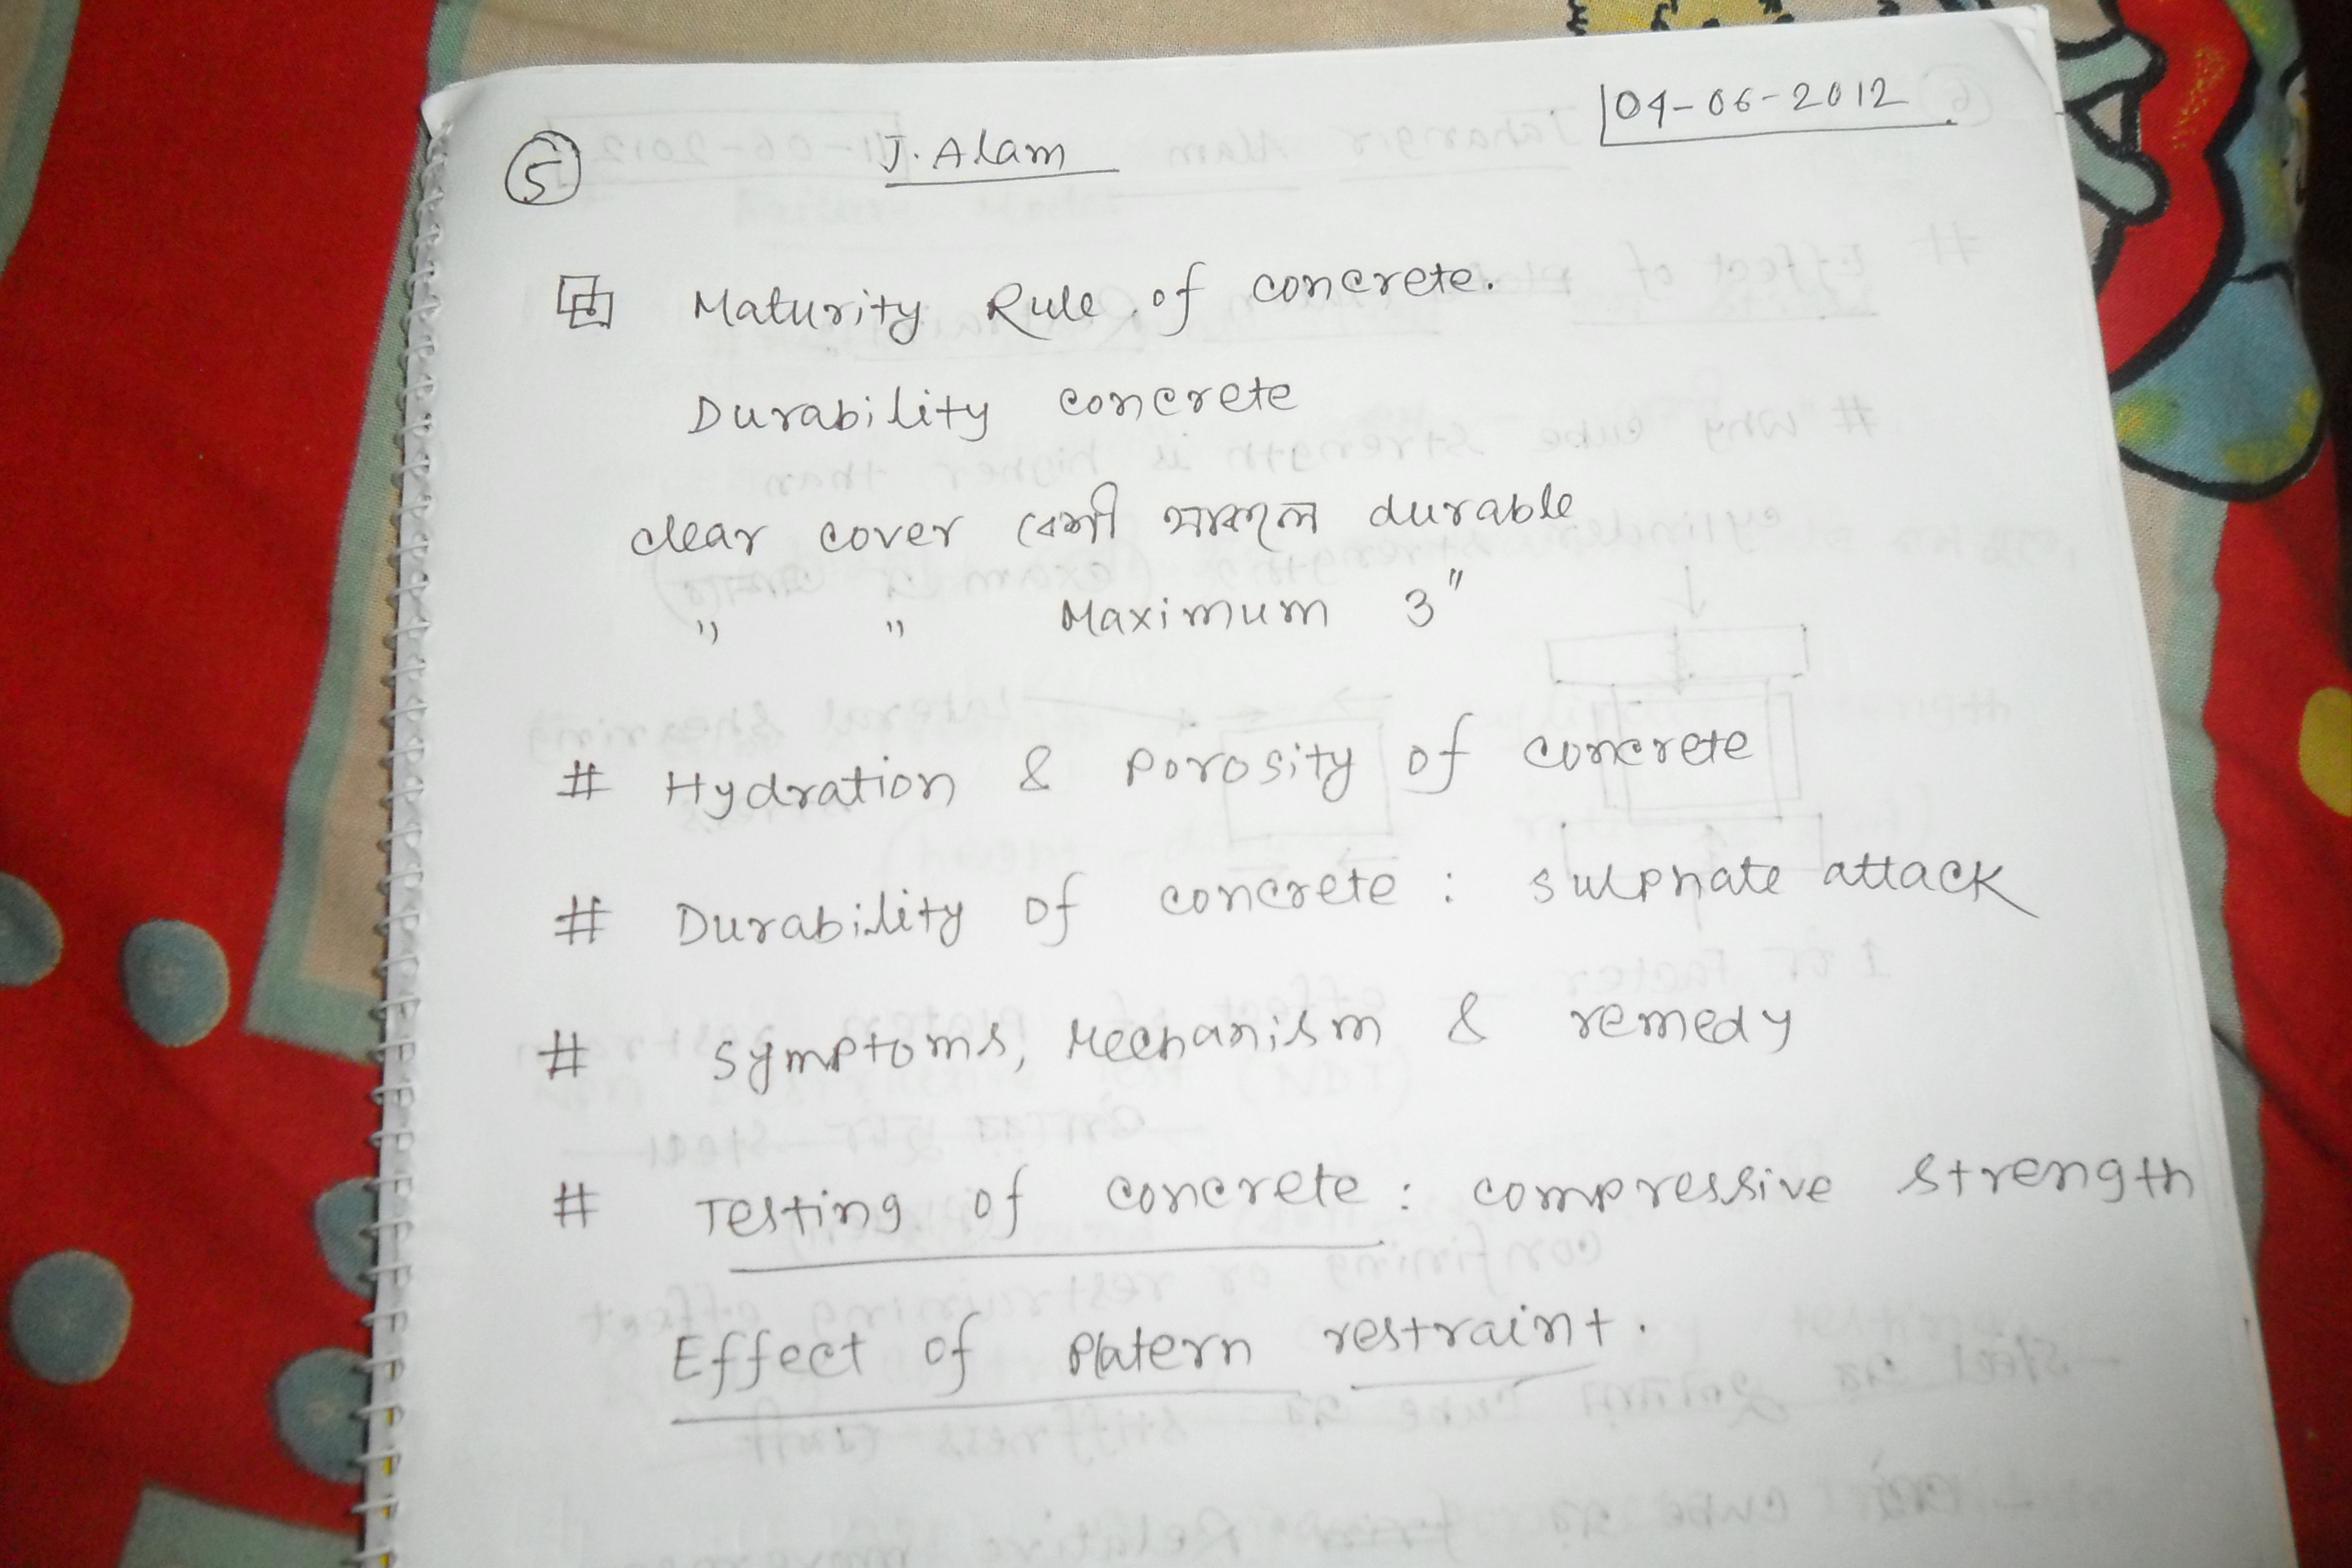 5 J. Alam 04-06-2012
Maturity Rule of concrete.
Durability concrete
clear cover বেশী থাকলে durable
" " Maximum 3"
# Hydration & Porosity of concrete
# Durability of concrete : sulphate attack
# Symptoms, Mechanism & remedy
# Testing of concrete : compressive strength
Effect of Platern restraint.